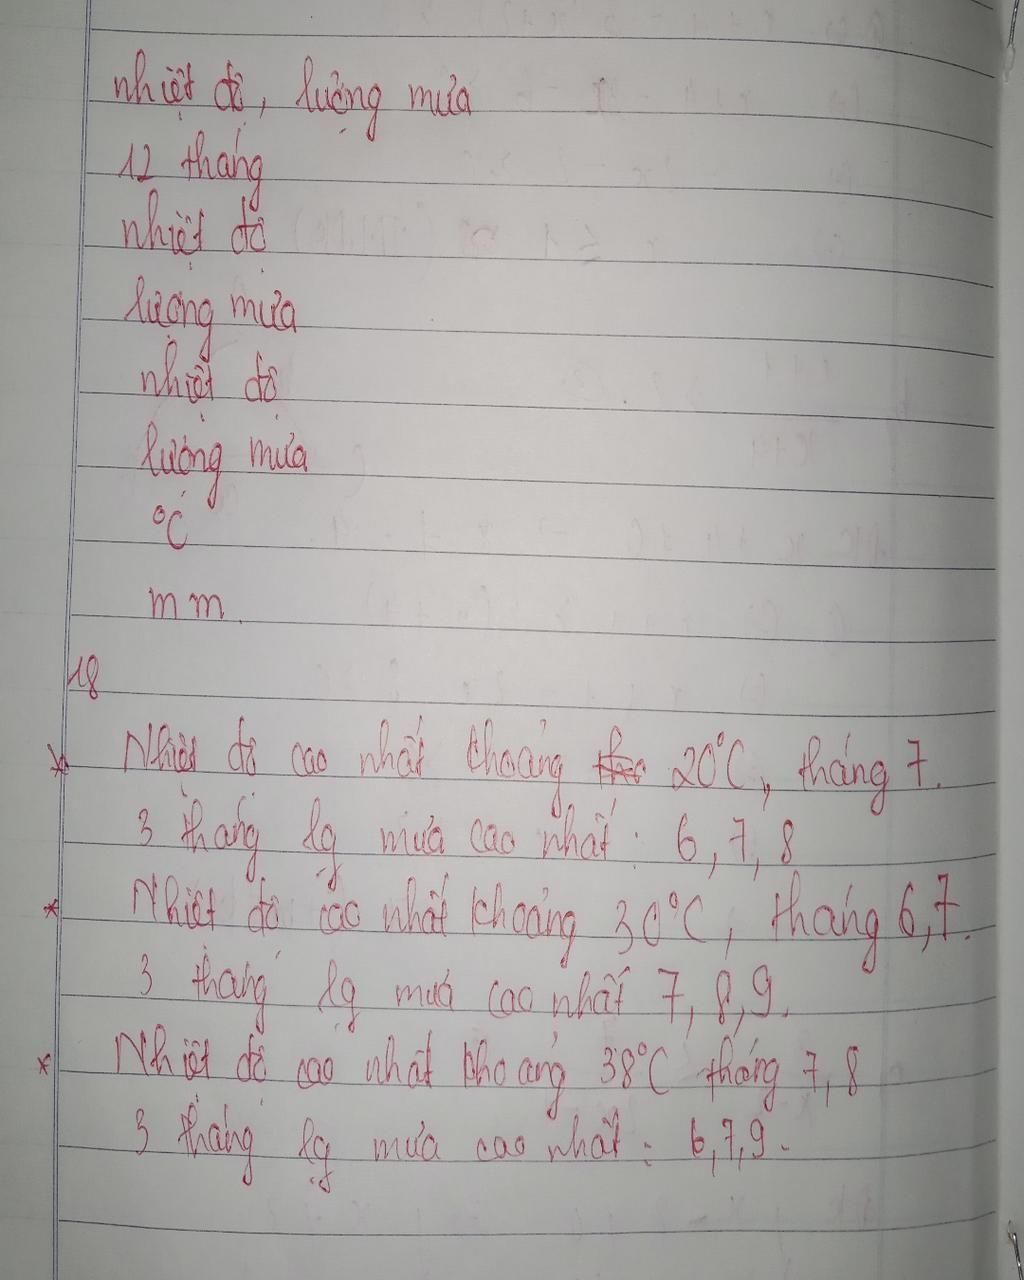 nhiệt độ, lượng mưa
12 tháng
nhiệt độ
lượng mưa
nhiệt độ
lượng mưa
°C
mm.
18
* Nhiệt độ cao nhất khoảng 20°C, tháng 7.
3 tháng lg mưa cao nhất: 6, 7, 8
* Nhiệt độ cao nhất khoảng 30°C, tháng 6,7.
3 tháng lg mưa cao nhất 7, 8, 9.
* Nhiệt độ cao nhất khoảng 38°C tháng 7, 8
3 tháng lg mưa cao nhất: 6,7,9.